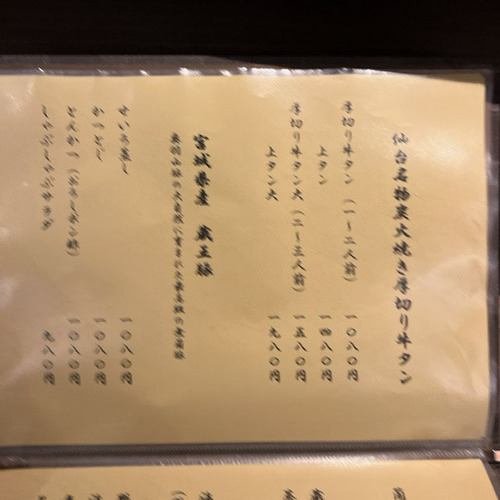 仙台名物炭火焼き厚切り牛タン
厚切り牛タン（一～二人前） 一〇八〇円
上タン 一四八〇円
厚切り牛タン大（二～三人前） 一五八〇円
上タン大 一九八〇円
宮城県産 蔵王豚
奥羽山脈の大自然に育まれた最高級の豚
せいろ蒸し 一〇八〇円
かつとじ 一〇八〇円
とんかつ（おろしポン酢） 一〇八〇円
しゃぶしゃぶサラダ 九八〇円